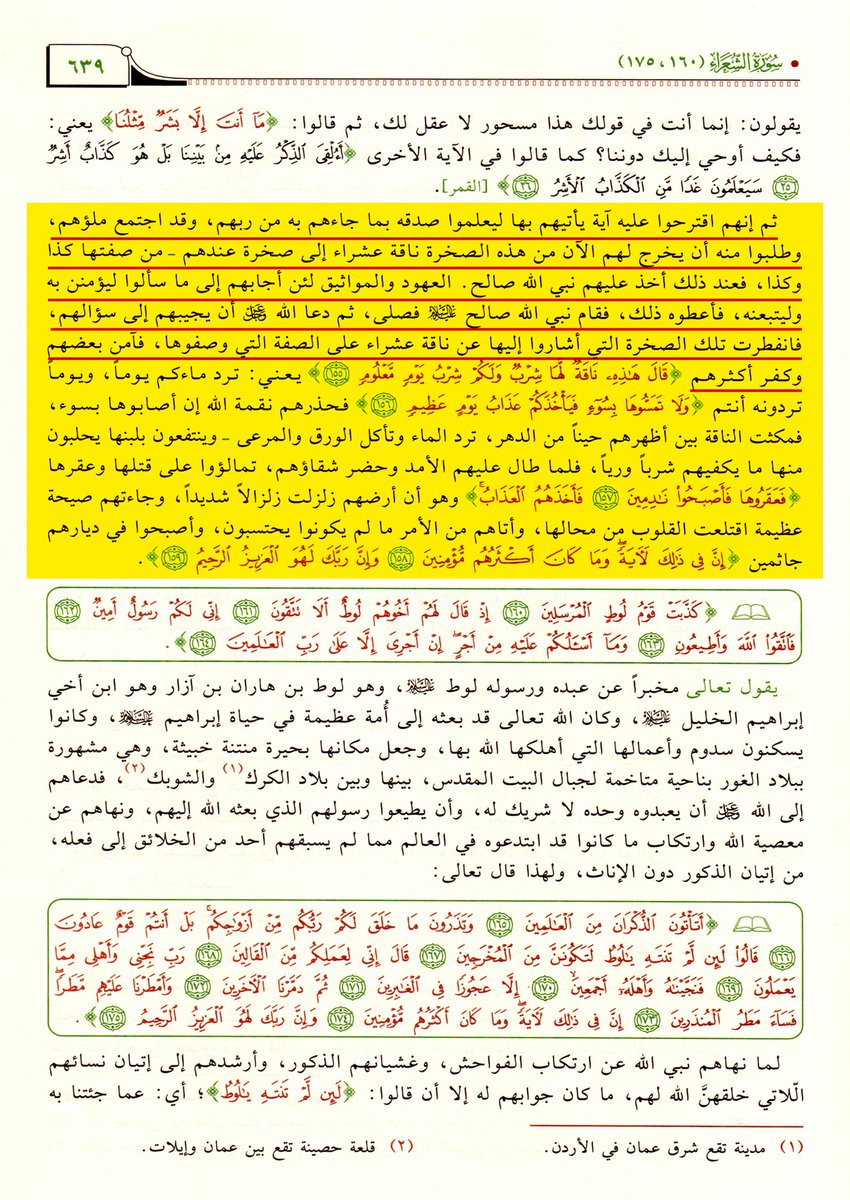 • سُورَةُ الشُّعَرَاءِ (١٦٠، ١٧٥)
٦٣٩
يقولون: إنما أنت في قولك هذا مسحور لا عقل لك، ثم قالوا: ﴿مَآ أَنتَ إِلَّا بَشَرٌ مِّثْلُنَا﴾ يعني:
فكيف أوحي إليك دوننا؟ كما قالوا في الآية الأخرى ﴿أَءُلْقِىَ الذِّكْرُ عَلَيْهِ مِنۢ بَيْنِنَا بَلْ هُوَ كَذَّابٌ أَشِرٌ
(٢٥) سَيَعْلَمُونَ غَدًا مَّنِ الْكَذَّابُ الْأَشِرُ (٢٦)﴾ [القمر].
ثم إنهم اقترحوا عليه آية يأتيهم بها ليعلموا صدقه بما جاءهم به من ربهم، وقد اجتمع ملؤهم،
وطلبوا منه أن يخرج لهم الآن من هذه الصخرة ناقة عشراء إلى صخرة عندهم - من صفتها كذا
وكذا، فعند ذلك أخذ عليهم نبي الله صالح. العهود والمواثيق لئن أجابهم إلى ما سألوا ليؤمنن به
وليتبعنه، فأعطوه ذلك، فقام نبي الله صالح عليه السلام فصلى، ثم دعا الله عز وجل أن يجيبهم إلى سؤالهم،
فانفطرت تلك الصخرة التي أشاروا إليها عن ناقة عشراء على الصفة التي وصفوها، فآمن بعضهم
وكفر أكثرهم ﴿قَالَ هَٰذِهِۦ نَاقَةٌ لَّهَا شِرْبٌ وَلَكُمْ شِرْبُ يَوْمٍ مَّعْلُومٍ (١٥٥)﴾ يعني: ترد ماءكم يوماً، ويوماً
تردونه أنتم ﴿وَلَا تَمَسُّوهَا بِسُوٓءٍ فَيَأْخُذَكُمْ عَذَابُ يَوْمٍ عَظِيمٍ (١٥٦)﴾ فحذرهم نقمة الله إن أصابوها بسوء،
فمكثت الناقة بين أظهرهم حيناً من الدهر، ترد الماء وتأكل الورق والمرعى - وينتفعون بلبنها يحلبون
منها ما يكفيهم شرباً ورياً، فلما طال عليهم الأمد وحضر شقاؤهم، تمالؤوا على قتلها وعقرها
﴿فَعَقَرُوهَا فَأَصْبَحُوا۟ نَٰدِمِينَ (١٥٧) فَأَخَذَهُمُ الْعَذَابُ﴾ وهو أن أرضهم زلزلت زلزالاً شديداً، وجاءتهم صيحة
عظيمة اقتلعت القلوب من محالها، وأتاهم من الأمر ما لم يكونوا يحتسبون، وأصبحوا في ديارهم
جاثمين ﴿إِنَّ فِى ذَٰلِكَ لَءَايَةً وَمَا كَانَ أَكْثَرُهُم مُّؤْمِنِينَ (١٥٨) وَإِنَّ رَبَّكَ لَهُوَ الْعَزِيزُ الرَّحِيمُ (١٥٩)﴾.
﴿كَذَّبَتْ قَوْمُ لُوطٍ الْمُرْسَلِينَ (١٦٠) إِذْ قَالَ لَهُمْ أَخُوهُمْ لُوطٌ أَلَا تَتَّقُونَ (١٦١) إِنِّى لَكُمْ رَسُولٌ أَمِينٌ (١٦٢)
فَاتَّقُوا۟ اللَّهَ وَأَطِيعُونِ (١٦٣) وَمَآ أَسْـَٔلُكُمْ عَلَيْهِ مِنْ أَجْرٍ إِنْ أَجْرِىَ إِلَّا عَلَىٰ رَبِّ الْعَٰلَمِينَ (١٦٤)﴾.
يقول تعالى مخبراً عن عبده ورسوله لوط عليه السلام، وهو لوط بن هاران بن آزار وهو ابن أخي
إبراهيم الخليل عليه السلام، وكان الله تعالى قد بعثه إلى أُمة عظيمة في حياة إبراهيم عليه السلام، وكانوا
يسكنون سدوم وأعمالها التي أهلكها الله بها، وجعل مكانها بحيرة منتنة خبيثة، وهي مشهورة
ببلاد الغور بناحية متاخمة لجبال البيت المقدس، بينها وبين بلاد الكرك(١) والشوبك(٢)، فدعاهم
إلى الله عز وجل أن يعبدوه وحده لا شريك له، وأن يطيعوا رسولهم الذي بعثه الله إليهم، ونهاهم عن
معصية الله وارتكاب ما كانوا قد ابتدعوه في العالم مما لم يسبقهم أحد من الخلائق إلى فعله،
من إتيان الذكور دون الإناث، ولهذا قال تعالى:
﴿أَتَأْتُونَ الذُّكْرَانَ مِنَ الْعَٰلَمِينَ (١٦٥) وَتَذَرُونَ مَا خَلَقَ لَكُمْ رَبُّكُم مِّنْ أَزْوَٰجِكُم بَلْ أَنتُمْ قَوْمٌ عَادُونَ
(١٦٦) قَالُوا۟ لَئِن لَّمْ تَنتَهِ يَٰلُوطُ لَتَكُونَنَّ مِنَ الْمُخْرَجِينَ (١٦٧) قَالَ إِنِّى لِعَمَلِكُم مِّنَ الْقَالِينَ (١٦٨) رَبِّ نَجِّنِى وَأَهْلِى مِمَّا
يَعْمَلُونَ (١٦٩) فَنَجَّيْنَٰهُ وَأَهْلَهُۥٓ أَجْمَعِينَ (١٧٠) إِلَّا عَجُوزًا فِى الْغَٰبِرِينَ (١٧١) ثُمَّ دَمَّرْنَا الْءَاخَرِينَ (١٧٢) وَأَمْطَرْنَا عَلَيْهِم مَّطَرًا
فَسَآءَ مَطَرُ الْمُنذَرِينَ (١٧٣) إِنَّ فِى ذَٰلِكَ لَءَايَةً وَمَا كَانَ أَكْثَرُهُم مُّؤْمِنِينَ (١٧٤) وَإِنَّ رَبَّكَ لَهُوَ الْعَزِيزُ الرَّحِيمُ (١٧٥)﴾.
لما نهاهم نبي الله عن ارتكاب الفواحش، وغشيانهم الذكور، وأرشدهم إلى إتيان نسائهم
الّلاتي خلقهنَّ الله لهم، ما كان جوابهم له إلا أن قالوا: ﴿لَئِن لَّمْ تَنتَهِ يَٰلُوطُ﴾؛ أي: عما جئتنا به
(١) مدينة تقع شرق عمان في الأردن. (٢) قلعة حصينة تقع بين عمان وإيلات.